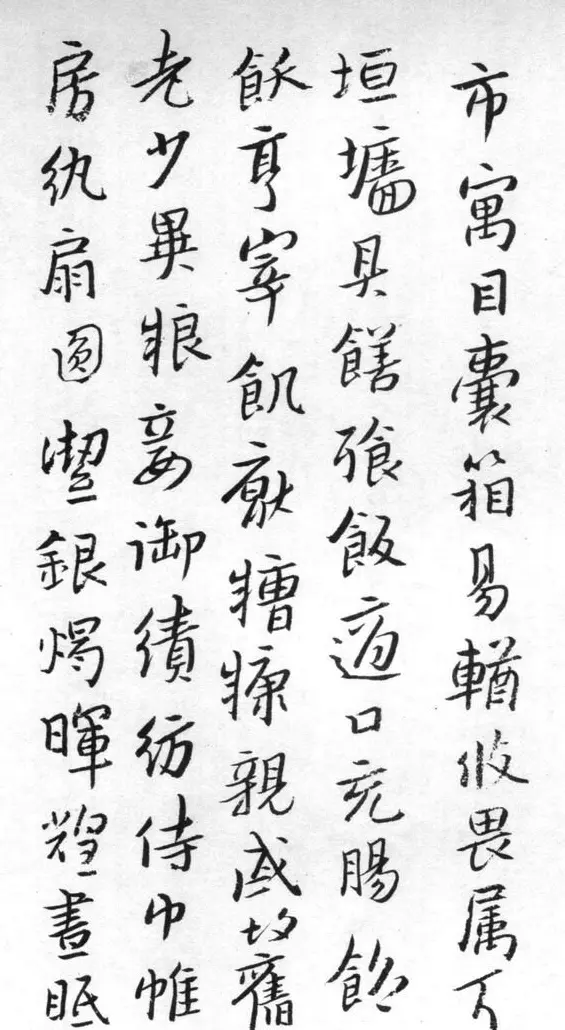 市寓目囊箱易輶攸畏属
垣墻具饍飡飯適口充腸飽
飫亨宰飢猒糟糠親戚故舊
老少異粮妾御績紡侍巾帷
房紈扇圓潔銀燭暐煌晝眠